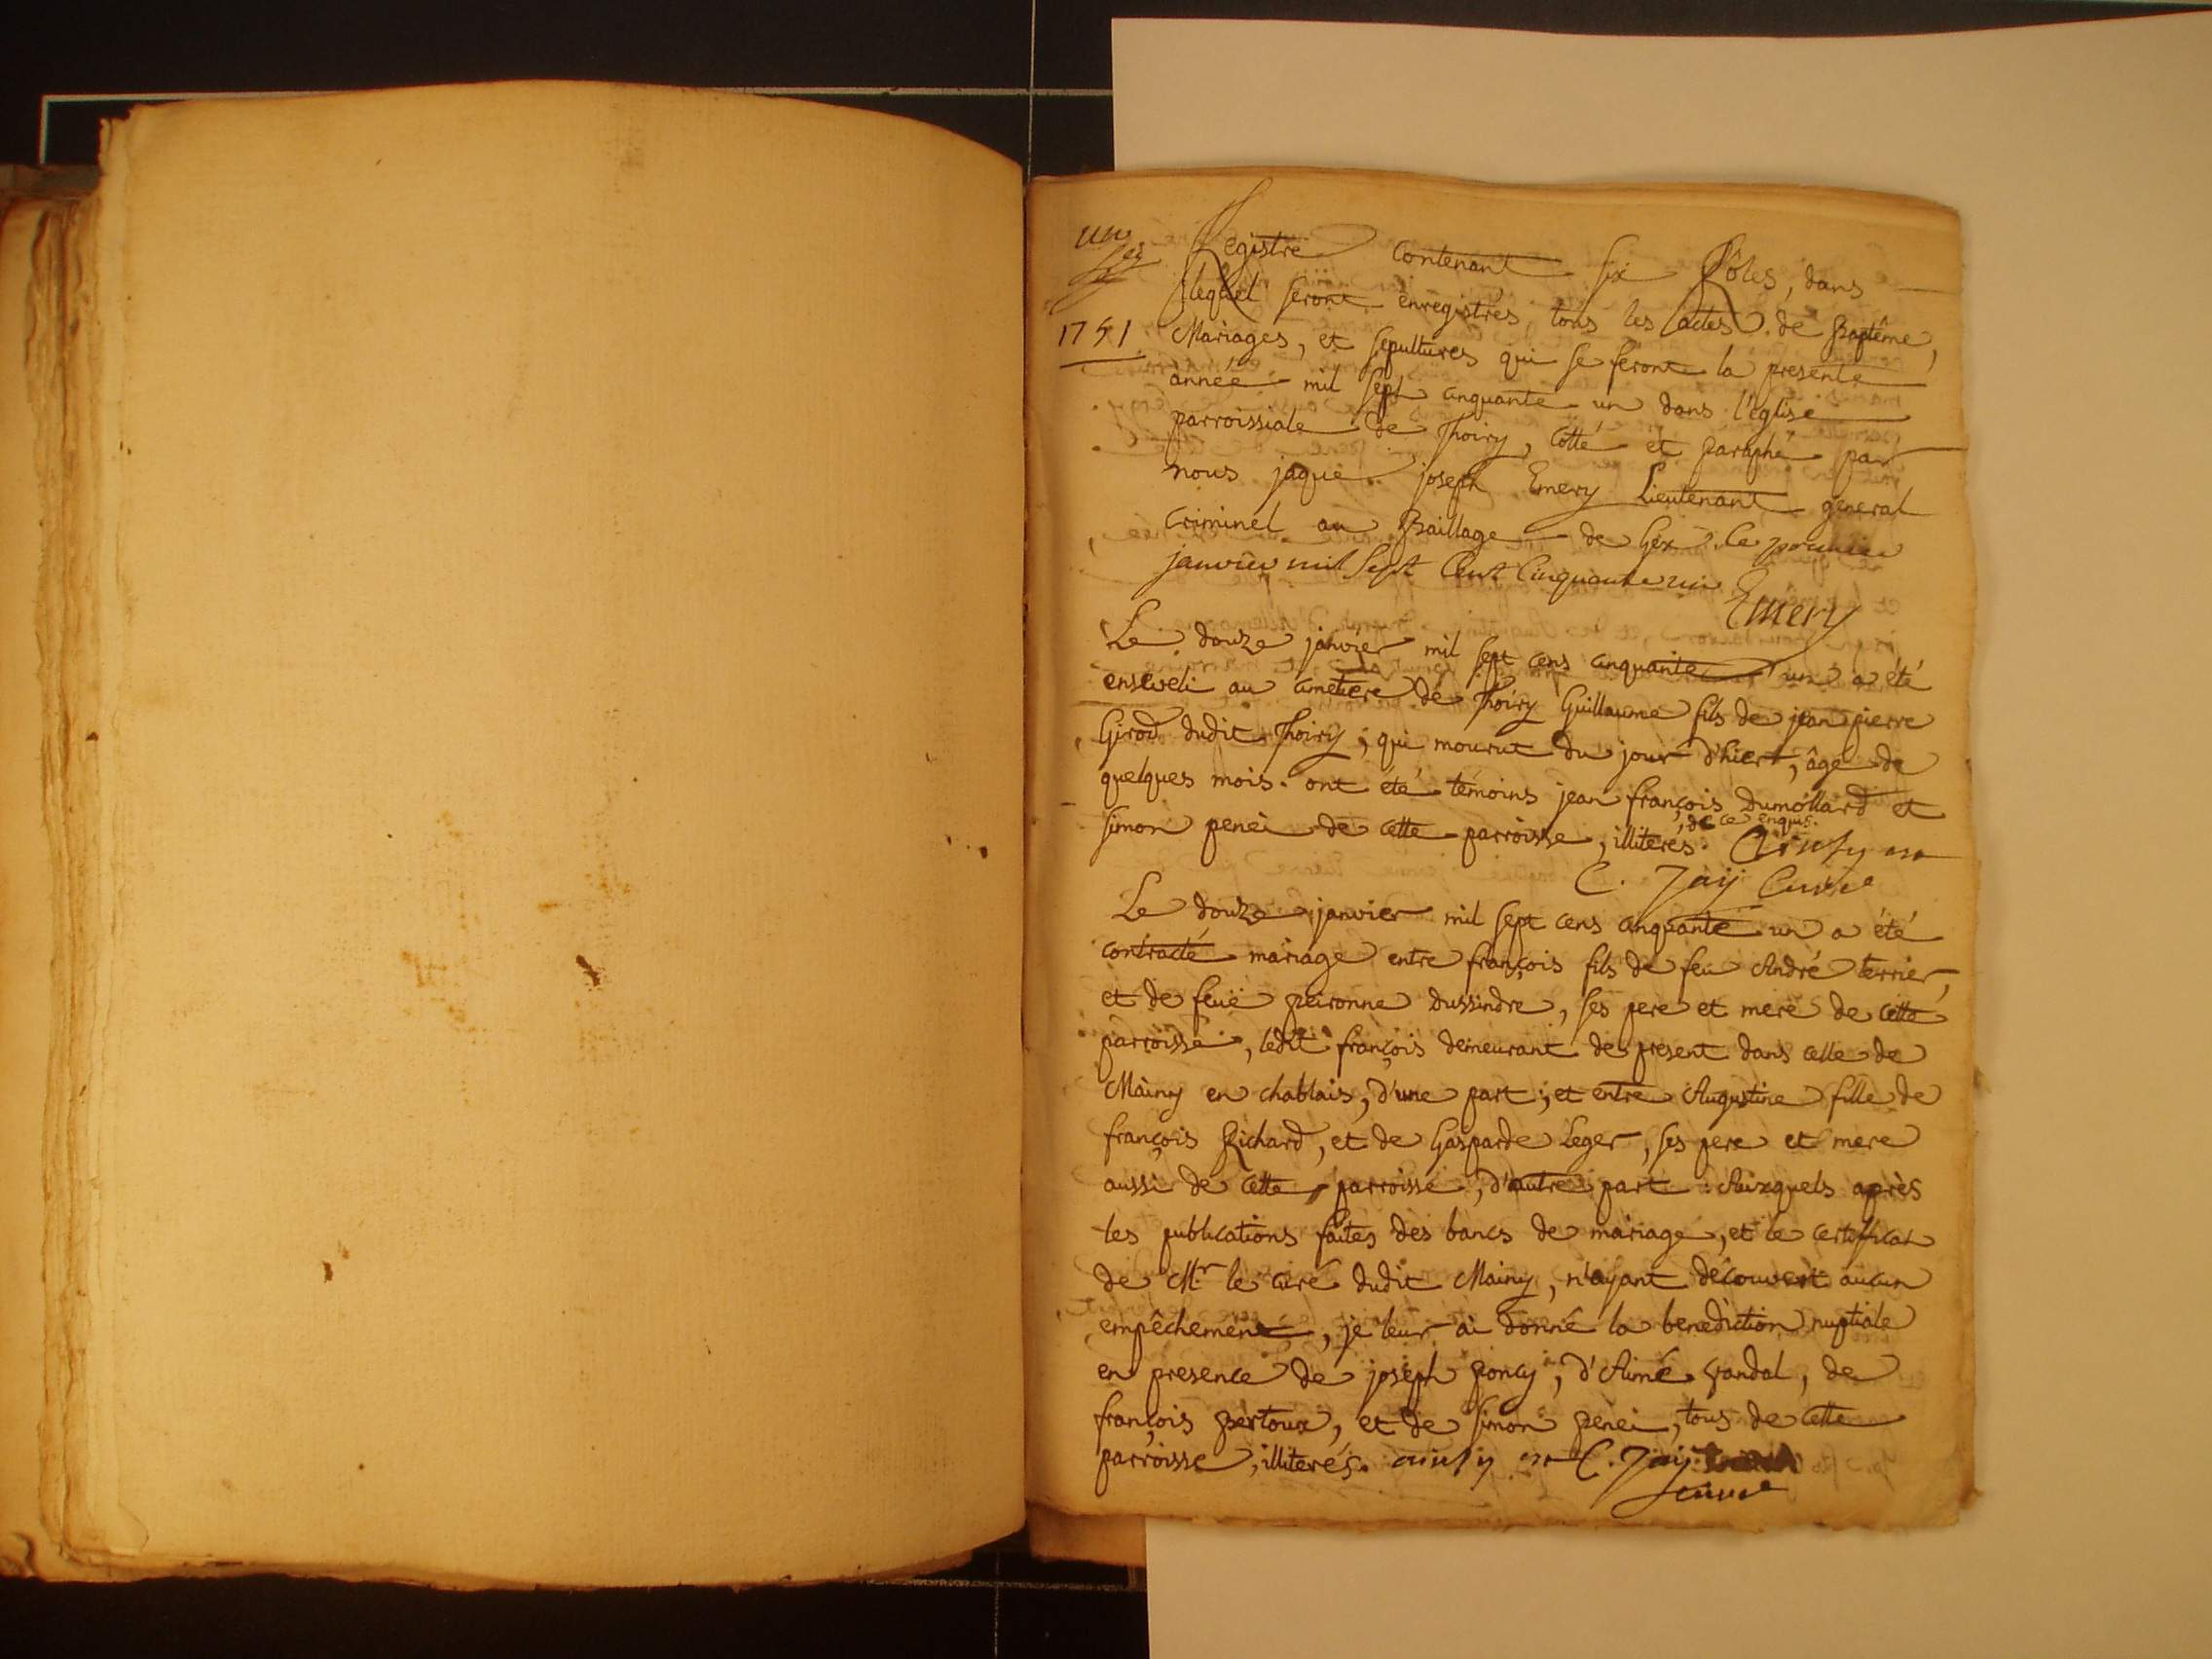 un
Registre contenant six Rôles, dans
lequel seront enregistrés tous les actes de Baptême,
1751
Mariages, et sepultures qui se feront la presente
année mil sept cinquante un dans l'église
parroissiale de Thoiry, cotté et paraphé par
nous jaque joseph Emery Lieutenant general
Criminel au Baillage de Gex. le premier
janvier mil sept Cent Cinquante un
Emery
Le douze janvier mil sept cens cinquante un a été
enseveli au cimetiere de Thoiry Guillaume fils de jean pierre
Girod dudit Thoiry, qui mourut du jour d'hiert, âgé de
quelques mois. ont été témoins jean françois Dumollard et
de ce enquis.
simon penei de cette parroisse, illiterés. Ainsy est
C. Jaij Curé
Le douze janvier mil sept cens cinquante un a été
contracté mariage entre françois fils de feu André terrier,
et de feuë peironne Dussindre, ses pere et mere de cette
parroisse, ledit françois demeurant de present dans celle de
Mainy en chablais, d'une part; et entre Augustine fille de
françois Richard, et de Gasparde Leger, ses pere et mere
aussi de cette parroisse, d'autre part. Auxquels après
les publications faites des bancs de mariage, et le certificat
de Mr le curé dudit Mainy, n'ayant découvert aucun
empêchement, je leur ai donné la benediction nuptiale
en presence de joseph poncy, d'Aimé vandal, de
françois pertoux, et de simon penei, tous de cette
parroisse, illiterés. ainsy est C. Jaij
curé